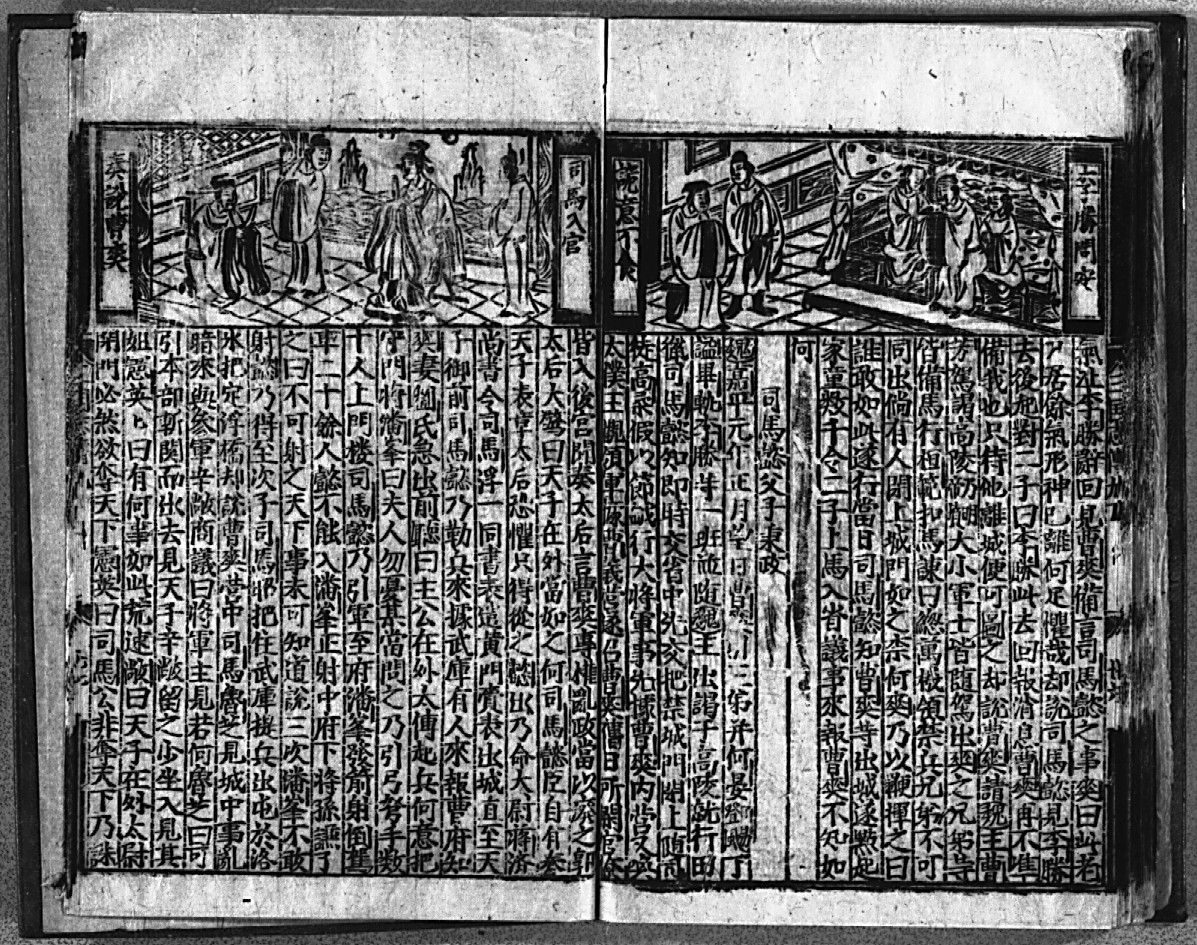 李勝問安
氣泄李勝辭回見曹爽備言司馬懿之事爽曰此若
尸居餘氣形神已離何足懼哉却說司馬懿見李勝
去後起對二子曰李勝此去回報消息曹爽再不準
備我也只待他離城便可圖之却說曹爽請魏王曹
芳駕謁高陵祭祀大小軍士皆隨駕出爽之兄弟等
皆備馬行桓範扣馬諫曰總萬機領禁兵兄弟不可
同出倘有人閉上城門如之奈何爽乃以鞭揮之曰
誰敢如此遂行當日司馬懿知曹爽等出城遂點起
家童數千令二子上馬入省議事來報曹爽不知如
何
司馬懿父子秉政
魏嘉平元年正月 日曹爽 三弟并何晏鄧颺丁
謐畢軌李勝等一班並隨魏王出謁于高陵就行田
獵司馬懿知即時交省中先交把禁城門閉上隨司
徒高柔假以節鉞行大將軍事先據曹爽內營又令
太僕王觀領軍 義營遂召曹爽舊日所
司馬入宮
皆入後宮聞奏太后言曹爽專權亂政當以廢之郭
太后大驚曰天子在外當如之何司馬懿臣自有奏
天子表章太后恐懼只得從之懿出乃命大尉蔣濟
尚書令司馬浮一同書表遣黃門賫表出城直至天
子御前司馬懿乃勒兵來據武庫有人來報曹府知
爽妻劉氏急出前廳曰主公在外太傅起兵何意把
守門將潘峯曰夫人勿憂某當問之乃引弓弩手數
十人上門楼司馬懿乃引軍至府潘峯發箭射倒舊
軍二十餘人懿不能入潘峯正射中府下將孫謙了
之曰不可射之天下事未可知道說三次潘峯不敢
射懿乃得至次子司馬昭把住武庫提兵出屯於洛
水把定浮橋却說曹爽營中司馬魯芝見城中事亂
暗來與參軍辛敞商議曰將軍主見若何魯芝曰可
引本部斬関而出去見天子辛敞留之少坐入見其
姐憲英英曰有何事如此慌速敞曰天子在外太尉
閉門必然欲奪天下憲英曰司馬公非奪天下乃誅
英說曹爽